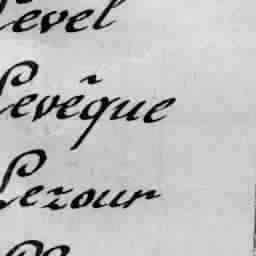 Level
Levêque
Lezour